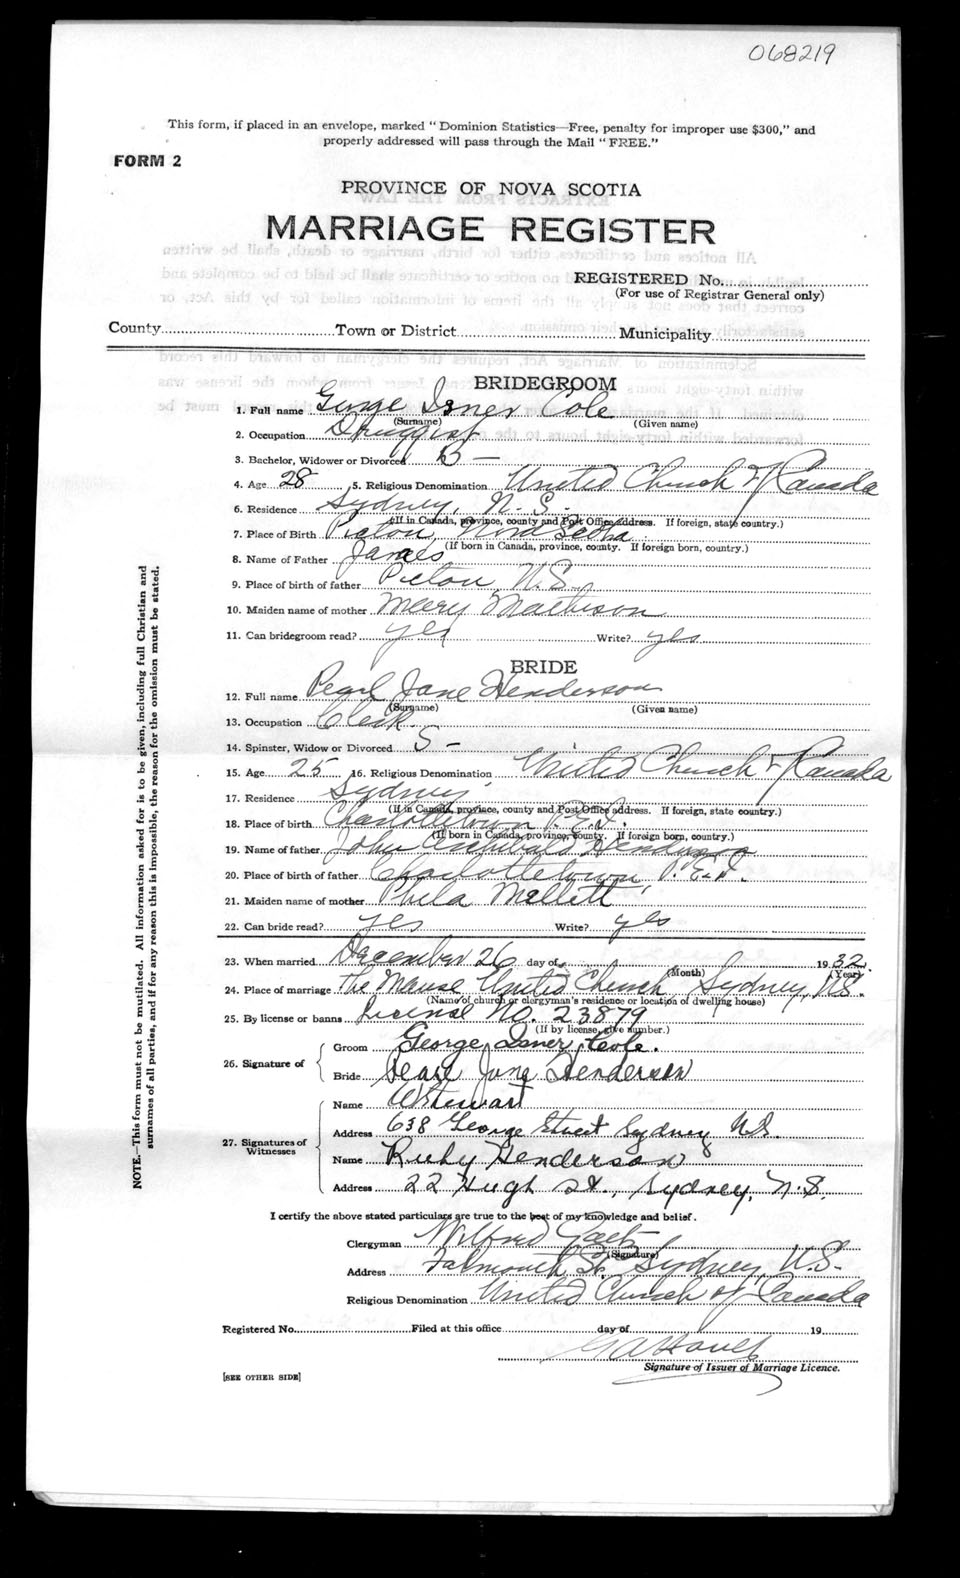 068219
This form, if placed in an envelope, marked "Dominion Statistics—Free, penalty for improper use $300," and
properly addressed will pass through the Mail "FREE."
FORM 2
PROVINCE OF NOVA SCOTIA
MARRIAGE REGISTER
REGISTERED No.
(For use of Registrar General only)
County Town or District Municipality
BRIDEGROOM
1. Full name George Isner Cole
(Surname) (Given name)
2. Occupation Druggist
3. Bachelor, Widower or Divorced B —
4. Age 28 5. Religious Denomination United Church of Canada
6. Residence Sydney, N.S.
(If in Canada, province, county and Post Office address. If foreign, state country.)
7. Place of Birth Pictou, Nova Scotia
(If born in Canada, province, county. If foreign born, country.)
8. Name of Father James
9. Place of birth of father Pictou, N.S.
10. Maiden name of mother Mary Mathison
11. Can bridegroom read? yes Write? yes
BRIDE
12. Full name Pearl Jane Henderson
(Surname) (Given name)
13. Occupation Clerk
14. Spinster, Widow or Divorced S —
15. Age 25 16. Religious Denomination United Church of Canada
17. Residence Sydney
(If in Canada, province, county and Post Office address. If foreign, state country.)
18. Place of birth Charlottetown P.E.I.
(If born in Canada, province, county. If foreign born, country.)
19. Name of father John Archibald Henderson
20. Place of birth of father Charlottetown, P.E.I.
21. Maiden name of mother Phila Mellett
22. Can bride read? yes Write? yes
23. When married December 26 day of 1932.
(Month) (Year)
24. Place of marriage The Manse United Church Sydney, N.S.
(Name of church or clergyman's residence or location of dwelling house)
25. By license or banns License No. 23879
(If by license, give number.)
26. Signature of Groom George Isner Cole.
Bride Pearl Jane Henderson
27. Signatures of Witnesses Name W Stewart
Address 638 George Street Sydney N.S.
Name Ruby Henderson
Address 22 Hugh St., Sydney, N.S.
I certify the above stated particulars are true to the best of my knowledge and belief.
Clergyman Wilfred Gaetz
(Signature)
Address Falmouth St. Sydney, N.S.
Religious Denomination United Church of Canada
Registered No. Filed at this office day of 19
Signature of Issuer of Marriage Licence.
[SEE OTHER SIDE]
NOTE.—This form must not be mutilated. All information asked for is to be given, including full Christian and
surnames of all parties, and if for any reason this is impossible, the reason for the omission must be stated.